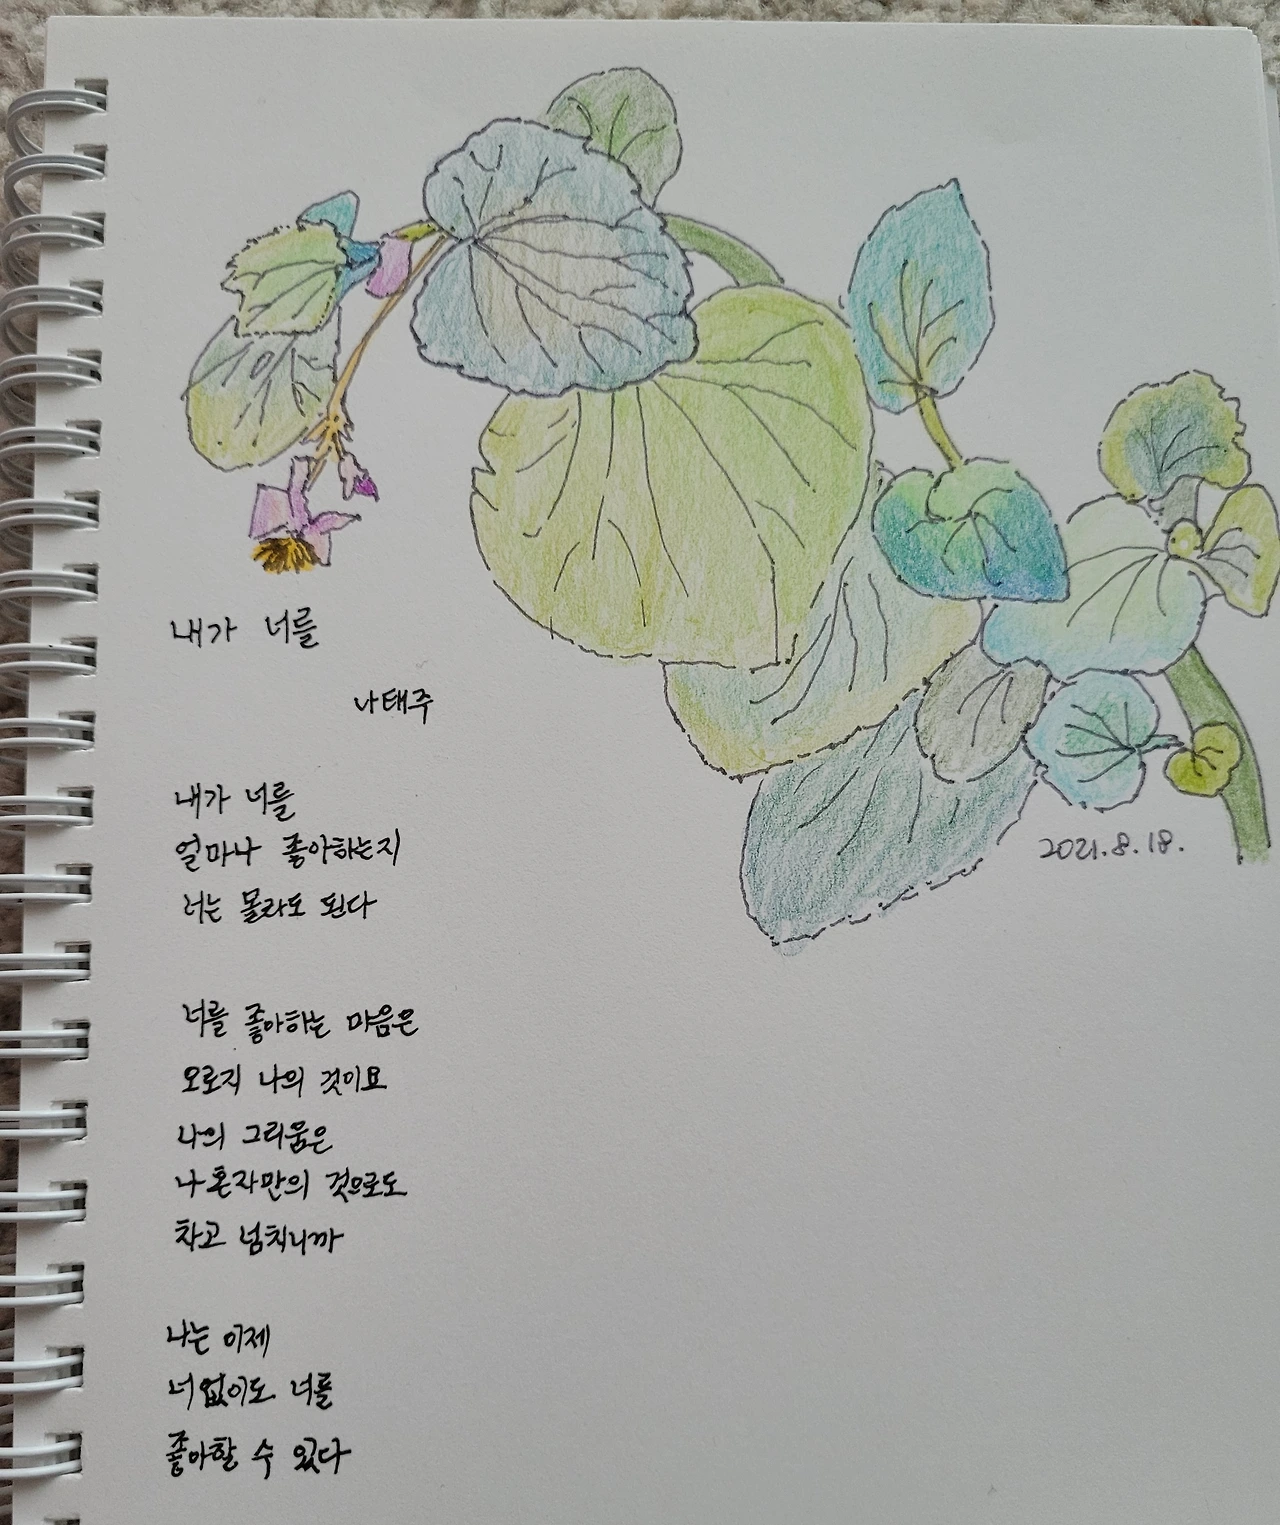 내가 너를
나태주
내가 너를
얼마나 좋아하는지
너는 몰라도 된다
너를 좋아하는 마음은
오로지 나의 것이요
나의 그리움은
나 혼자만의 것으로도
차고 넘치니까
나는 이제
너 없이도 너를
좋아할 수 있다
2021.8.18.